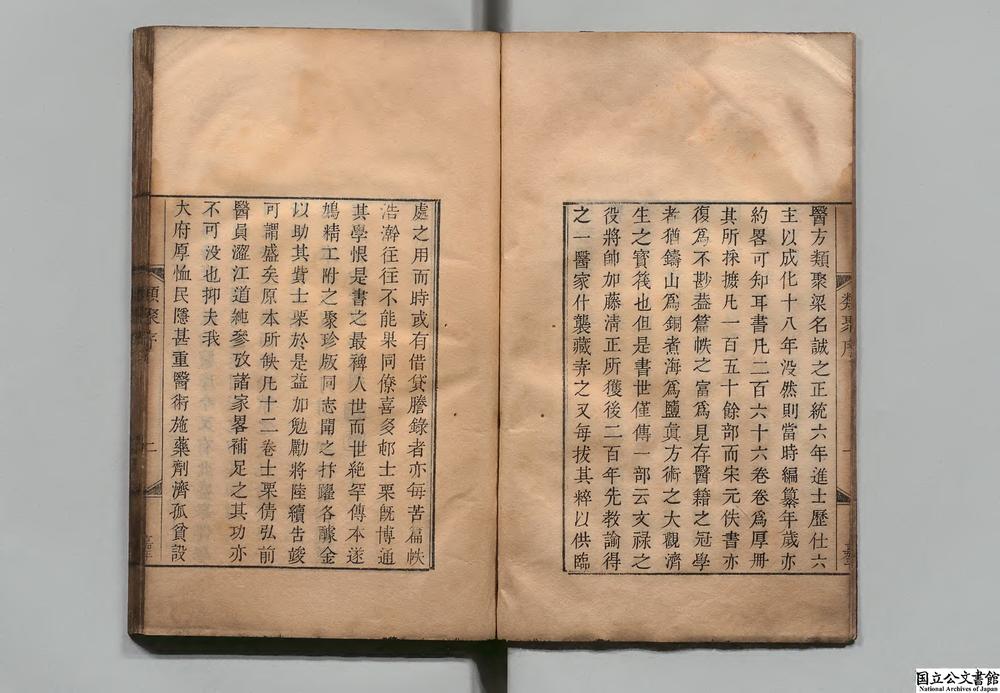 醫方類聚梁名誠之正統六年進士歷仕六
主以成化十八年没然則當時編纂年歲亦
約畧可知耳書凡二百六十六卷卷爲厚冊
其所採摭凡一百五十餘部而宋元佚書亦
復爲不尠葢篇帙之富爲見存醫籍之冠學
者猶鑄山爲銅煮海爲鹽眞方術之大觀濟
生之寳筏也但是書世僅傳一部云文禄之
役將帥加藤清正所獲後二百年先教諭得
之一醫家什襲藏弆之又每拔其粹以供臨
類聚序
一
處之用而時或有借貸謄錄者亦每苦篇帙
浩瀚往往不能果同僚喜多邨士栗旣博通
其學恨是書之最稗人世而世絶罕傳本遂
鳩精工附之聚珍版同志聞之抃躍各醵金
以助其貲士栗於是益加勉勵將陸續告竣
可謂盛矣原本所缺凡十二卷士栗倩弘前
醫員澀江道純參攷諸家畧補足之其功亦
不可没也抑夫我
大府厚恤民隱甚重醫術施藥劑濟孤貧設
類聚序
二
国立公文書館
National Archives of Japan